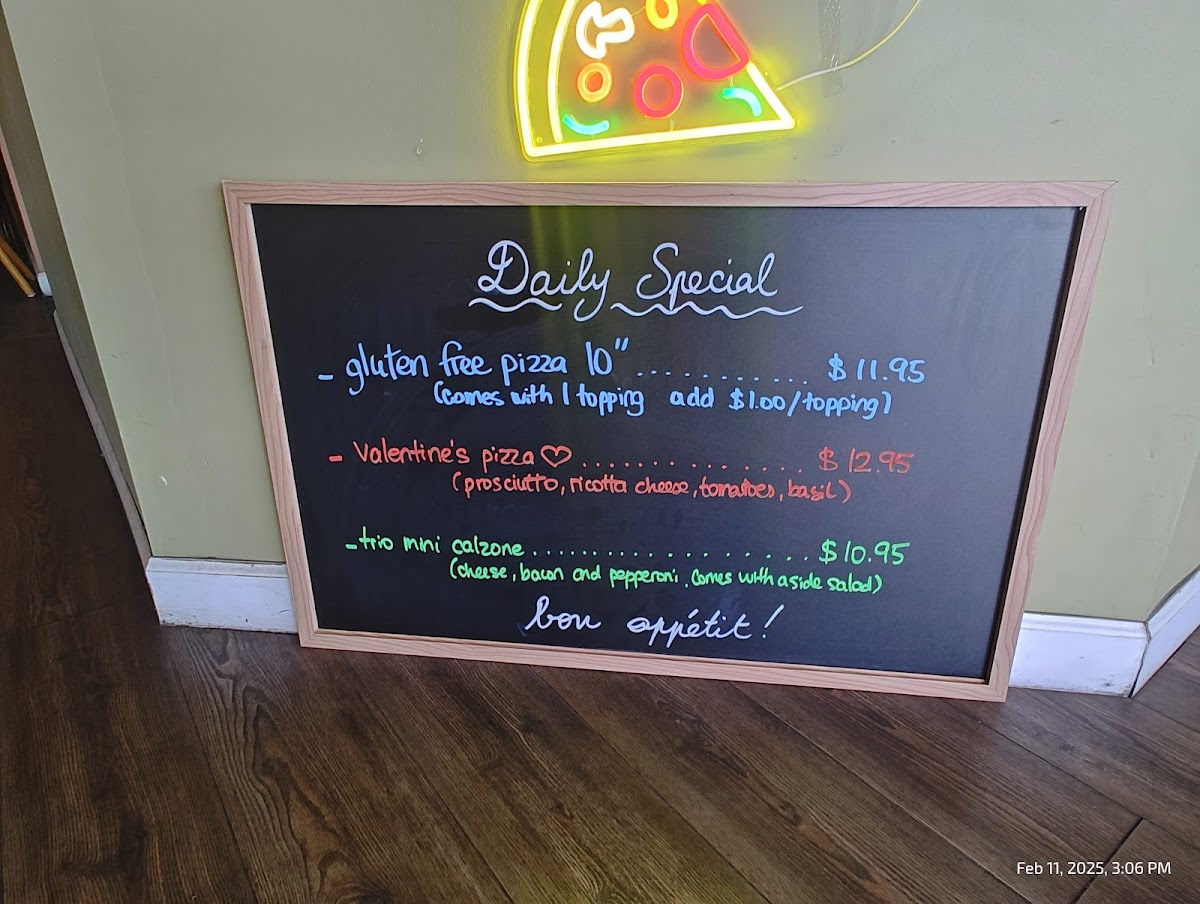 Daily Special
- gluten free pizza 10" ........... $11.95
(comes with 1 topping add $1.00/topping)
- Valentine's pizza♡ .............. $12.95
(prosciutto, ricotta cheese, tomatoes, basil)
- trio mini calzone .................. $10.95
(cheese, bacon and pepperoni. comes with a side salad)
bon appétit!
Feb 11, 2025, 3:06 PM